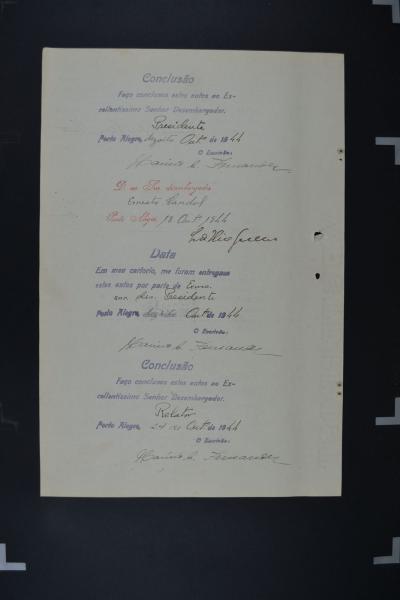 Conclusão
Faço conclusos estes autos ao Ex-
cellentissimo Senhor Desembargador.
Presidente
Porto Alegre, dezoito Out de 1944
O Escrivão:
Fernandes
D. ao Snr. desembargador
Ernesto
Porto Alegre, 18 Out 1944
Data
Em meu cartorio, me foram entregues
estes autos por parte do Exmo.
snr. des. Presidente
Porto Alegre, dezoito Out de 1944
O Escrivão:
Fernandes
Conclusão
Faço conclusos estes autos ao Ex-
cellentissimo Senhor Desembargador.
Relator
Porto Alegre, 24 de Out de 1944
O Escrivão:
Fernandes